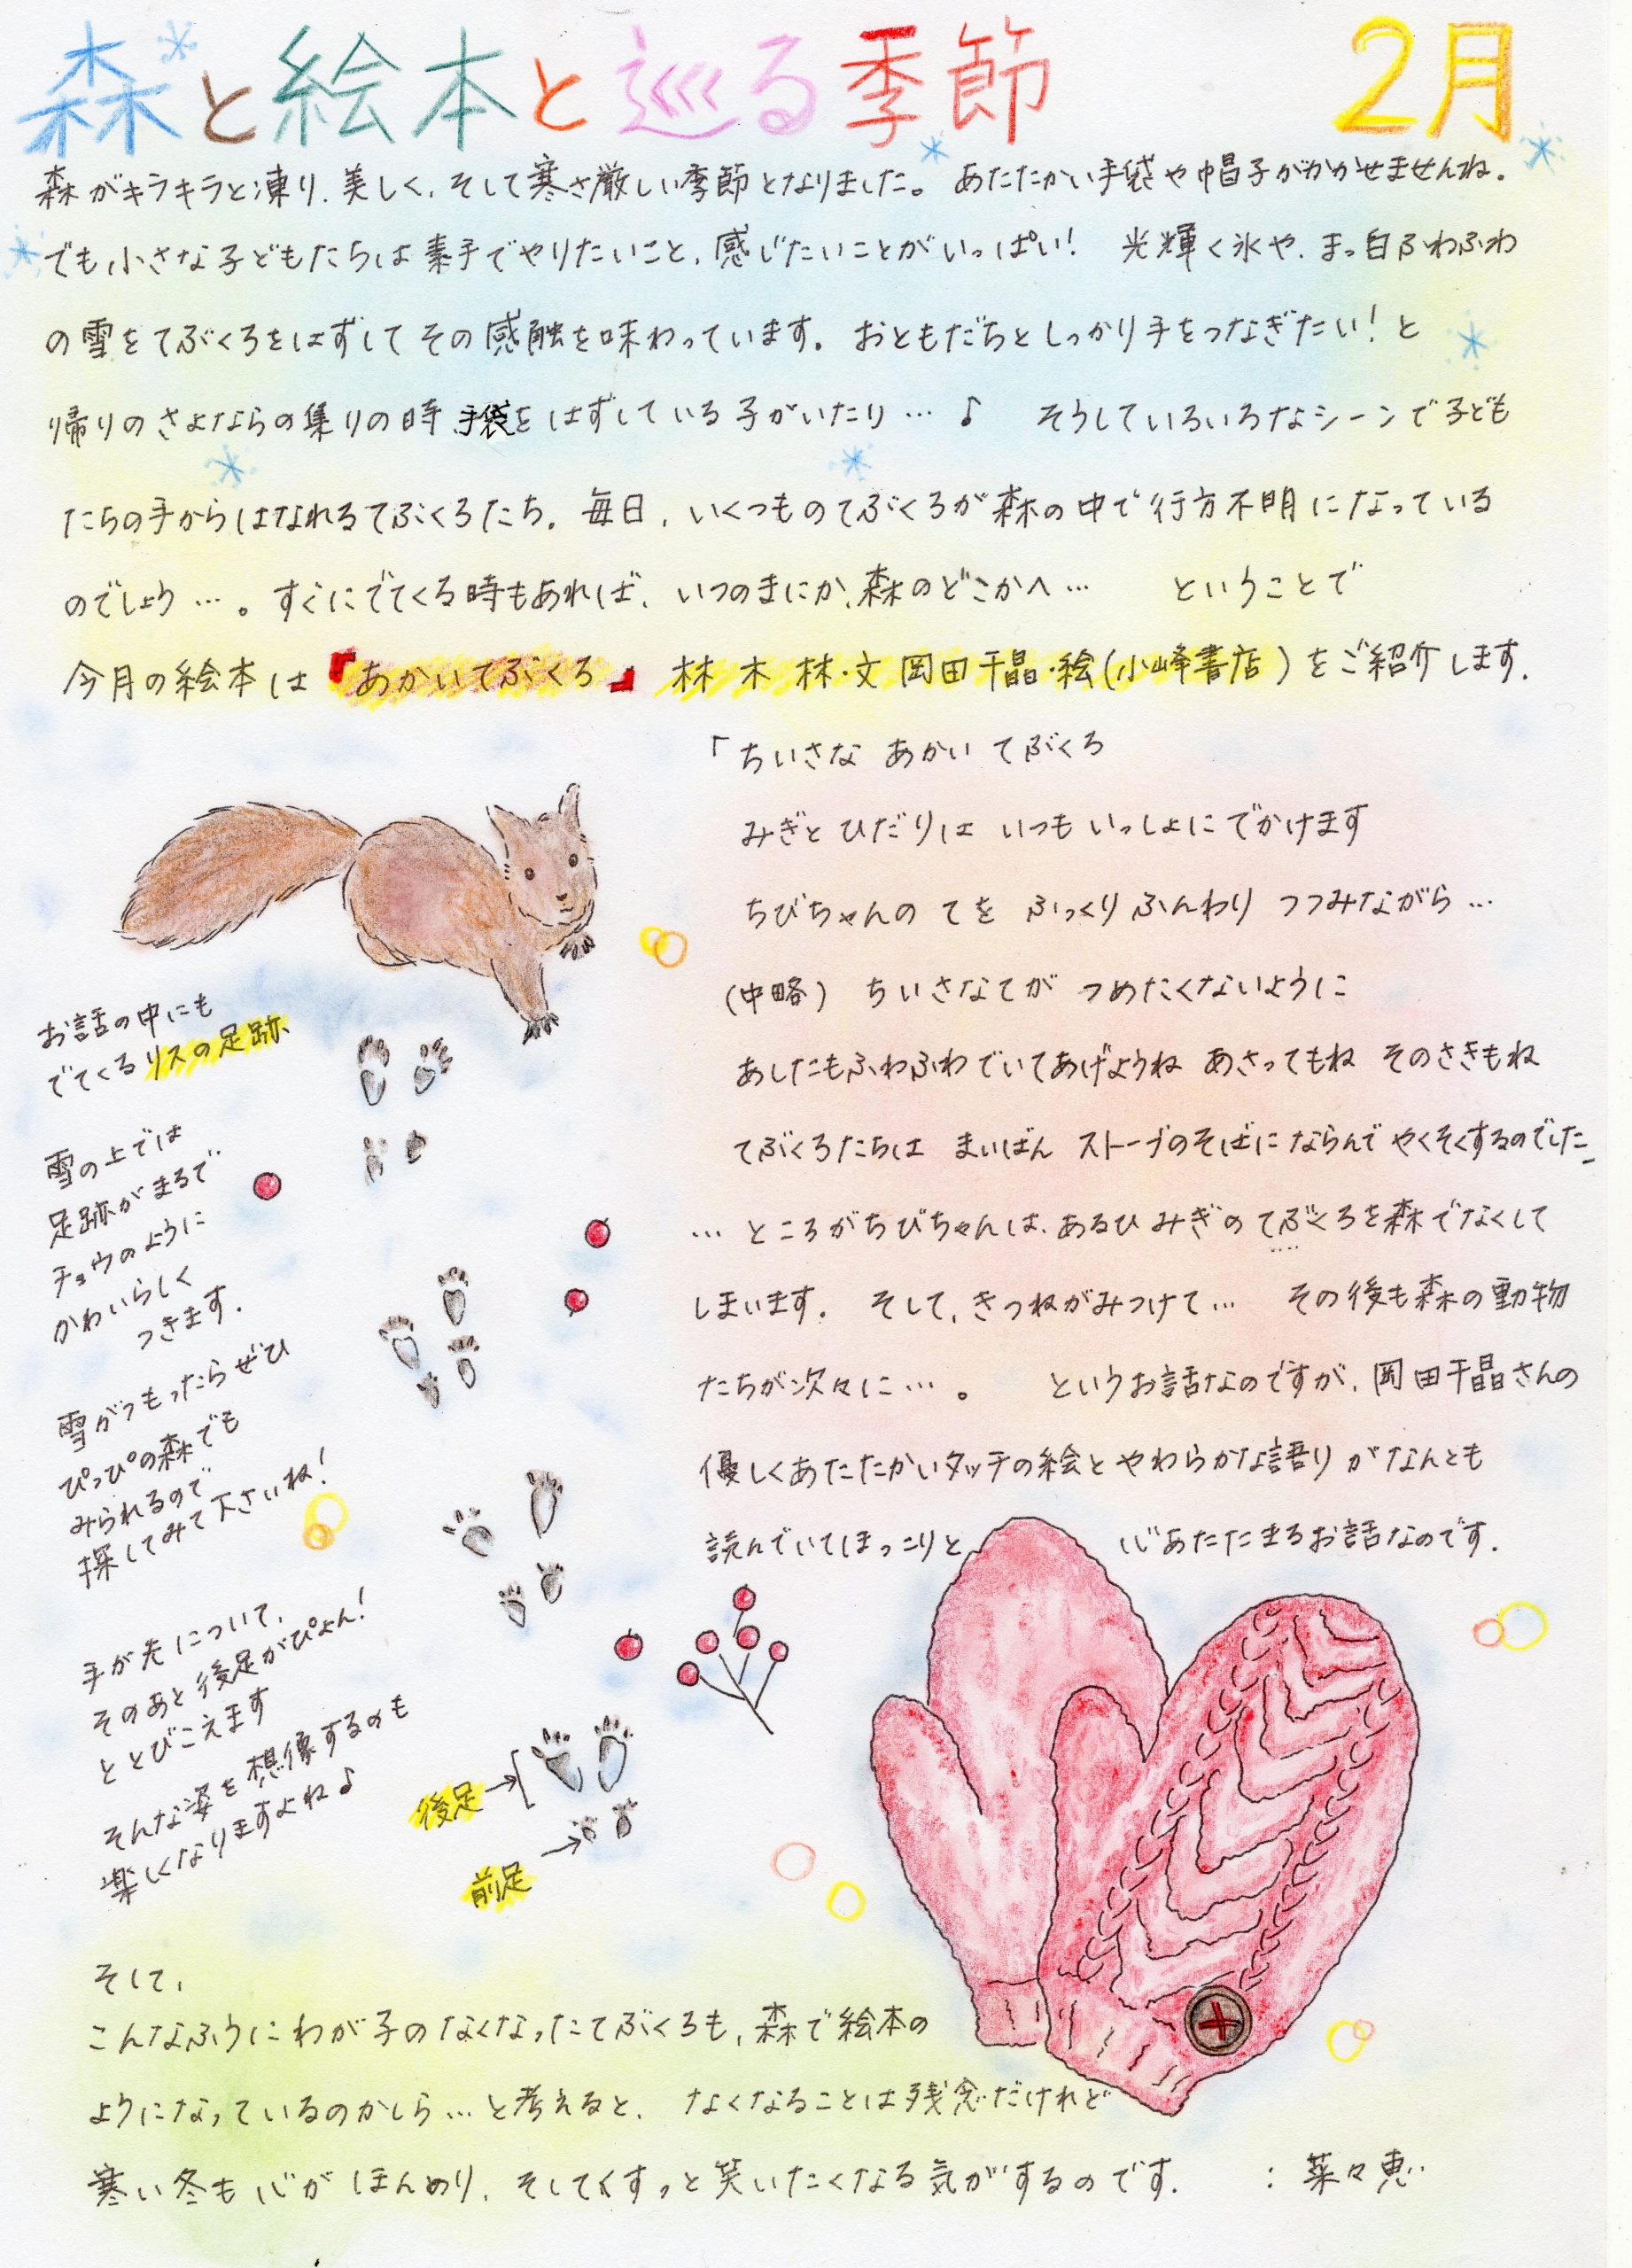 森と絵本と巡る季節 2月
森がキラキラと凍り、美しく、そして寒さ厳しい季節となりました。 あたたかい手袋や帽子がかかせませんね。
でも小さな子どもたちは素手でやりたいこと、感じたいことがいっぱい! 光輝く氷や、まっ白ふわふわ
の雪をてぶくろをはずしてその感触を味わっています。おともだちとしっかり手をつなぎたい!と
帰りのさよならの集りの時 手袋をはずしている子がいたり…♪ そうしていろいろなシーンで子ども
たちの手からはなれるてぶくろたち。毎日、いくつものてぶくろが森の中で行方不明になっている
のでしょう…。すぐにでてくる時もあれば、いつのまにか、森のどこかへ… ということで
今月の絵本は『あかいてぶくろ』 林 木 林・文 岡田千晶・絵(小峰書店)をご紹介します.
「ちいさな あかい てぶくろ
みぎと ひだりは いつも いっしょに でかけます
ちびちゃんの てを ふっくり ふんわり つつみながら…
(中略) ちいさなてが つめたくないように
あしたもふわふわでいてあげようね あさってもね そのさきもね
てぶくろたちは まいばん ストーブのそばに ならんで やくそくするのでした」
… ところがちびちゃんは、あるひ みぎの てぶくろを森でなくして
しまいます. そして、きつねがみつけて… その後も森の動物
たちが次々に…。 というお話なのですが、岡田千晶さんの
優しくあたたかいタッチの絵と やわらかな語り がなんとも
読んでいてほっこりと 心あたたまるお話なのです.
お話の中にも
でてくるリスの足跡
雪の上では
足跡がまるで
チョウのように
かわいらしく
つきます.
雪がつもったらぜひ
ぴっぴの森でも
みられるので
探してみて下さいね!
手が先について、
そのあと後足がぴょん!
ととびこえます
そんな姿を想像するのも
楽しくなりますよね♪
後足→
前足→
そして、
こんなふうにわが子のなくなったてぶくろも、森で絵本の
ようになっているのかしら…と考えると、 なくなることは残念だけれど
寒い冬も心がほんのり、そしてくすっと笑いたくなる気がするのです. :菜々恵